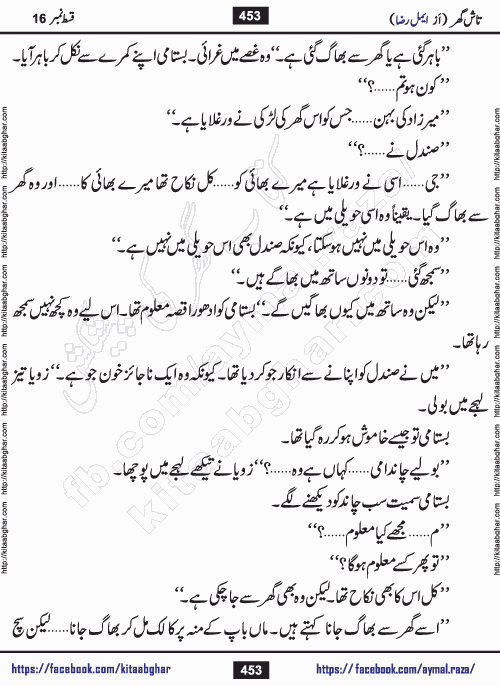 تاش گھر (از ایمل رضا) 453 قسط نمبر 16
’’باہر گئی ہے یا گھر سے بھاگ گئی ہے۔‘‘ وہ غصے میں غرائی۔ بستامی اپنے کمرے سے نکل کر باہر آیا۔
’’کون ہو تم......؟‘‘
’’میرزاد کی بہن......جس کو اس گھر کی لڑکی نے ورغلایا ہے۔‘‘
’’صندل نے......؟‘‘
’’جی......اسی نے ورغلایا ہے میرے بھائی کو......کل نکاح تھا میرے بھائی کا......اور وہ گھر
سے بھاگ گیا۔ یقیناً وہ اسی حویلی میں ہے۔‘‘
’’وہ اس حویلی میں نہیں ہوسکتا، کیونکہ صندل بھی اس حویلی میں نہیں ہے۔‘‘
’’سمجھ گئی......تو دونوں ساتھ میں بھاگے ہیں۔‘‘
’’لیکن وہ ساتھ میں کیوں بھاگیں گے۔‘‘ بستامی کو ادھورا قصہ معلوم تھا۔ اس لیے وہ کچھ نہیں سمجھ
رہا تھا۔
’’میں نے صندل کو اپنانے سے انکار جو کر دیا تھا۔ کیونکہ وہ ایک ناجائز خون جو ہے۔‘‘ زویا تیز
لہجے میں بولی۔
بستامی تو جیسے خاموش ہو کر رہ گیا تھا۔
’’بولیے چاندامی......کہاں ہے وہ......؟‘‘ زویا نے تیکھے لہجے میں پوچھا۔
بستامی سمیت سب چاند کو دیکھنے لگے۔
’’م......مجھے کیا معلوم......؟‘‘
’’تو پھر کسے معلوم ہوگا؟‘‘
’’کل اس کا بھی نکاح تھا۔ لیکن وہ بھی گھر سے جا چکی ہے۔‘‘
’’اسے گھر سے بھاگ جانا کہتے ہیں۔ ماں باپ کے منہ پر کالک مل کر بھاگ جانا......لیکن سچ
https://facebook.com/kitaabghar 453 https://facebook.com/aymal.raza/
http://kitaabghar.com http://kitaabghar.com http://kitaabghar.com http://kitaabghar.com http://kitaabghar.com http://kitaabghar.com
http://kitaabghar.com http://kitaabghar.com http://kitaabghar.com http://kitaabghar.com http://kitaabghar.com http://kitaabghar.com
کتاب گھر کی پیشکش
fb.com/aymal.raza/
kitaabghar.com